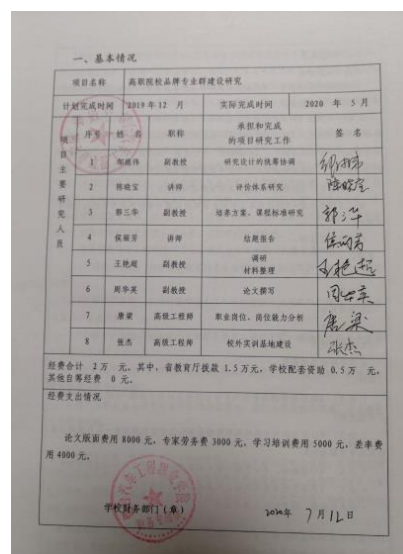 一、基本情况
项目名称 高职院校品牌专业群建设研究
计划完成时间 2019 年 12 月 实际完成时间 2020 年 5 月
项目主要研究人员
序号 姓 名 职称 承担和完成的项目研究工作 签 名
1 副教授 研究设计的统筹协调
2 陈晓宝 讲师 评价体系研究 陈晓宝
3 郭三华 副教授 培养方案、课程标准研究
4 侯丽芳 讲师 结题报告 侯丽芳
5 王艳超 副教授 调研 材料整理 王艳超
6 周华英 副教授 论文撰写 周华英
7 唐梁 高级工程师 职业岗位、岗位能力分析 唐梁
8 张杰 高级工程师 校外实训基地建设 张杰
经费合计 2 万 元,其中,省教育厅拨款 1.5 万元,学校配套资助 0.5 万 元,
其他自筹经费 0 元。
经费支出情况
论文版面费用 8000 元,专家劳务费 3000 元,学习培训费用 5000 元,差率费
用 4000 元。
学校财务部门(章) 2020年 7 月 12 日